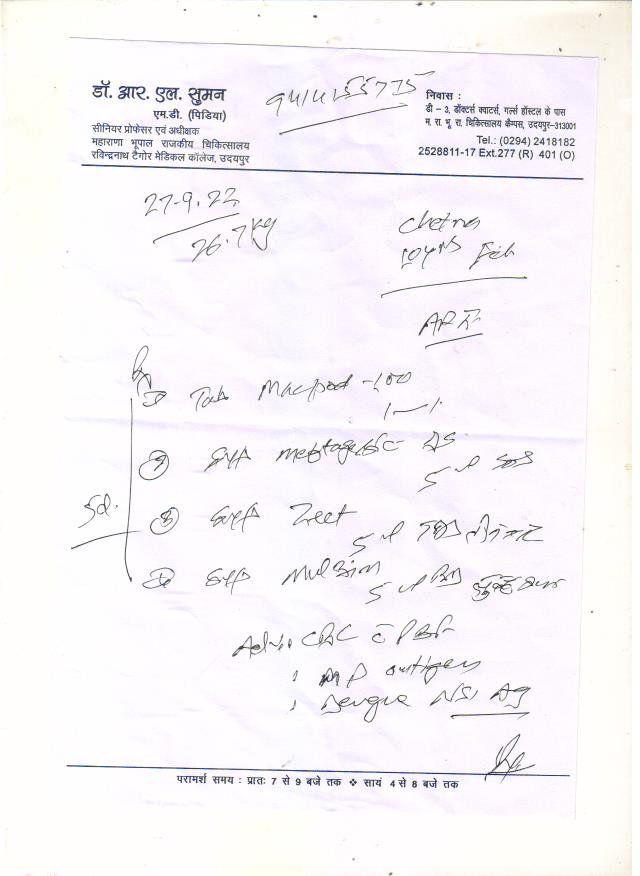 डॉ. आर. एल. सुमन
एम.डी. (पिडिया)
सीनियर प्रोफेसर एवं अधीक्षक
महाराणा भूपाल राजकीय चिकित्सालय
रविन्द्रनाथ टैगोर मेडिकल कॉलेज, उदयपुर
निवास :
डी – 3, डॉक्टर्स क्वाटर्स, गर्ल्स हॉस्टल के पास
म. रा. भू. रा. चिकित्सालय कैम्पस, उदयपुर–313001
Tel.: (0294) 2418182
2528811-17 Ext.277 (R) 401 (O)
27-9.22
26.7 kg
Chetna
10 yrs
Rx
① Tab Macpod -100
1—1
② Syp AS
5 ml SOS
5d.
③ Syp Zeet
5 ml TDS
④ Syp
5 ml BD
Adv: CBC c̄ PBF
: MP antigen
: Dengue NS1 Ag
परामर्श समय : प्रातः 7 से 9 बजे तक ❖ सायं 4 से 8 बजे तक